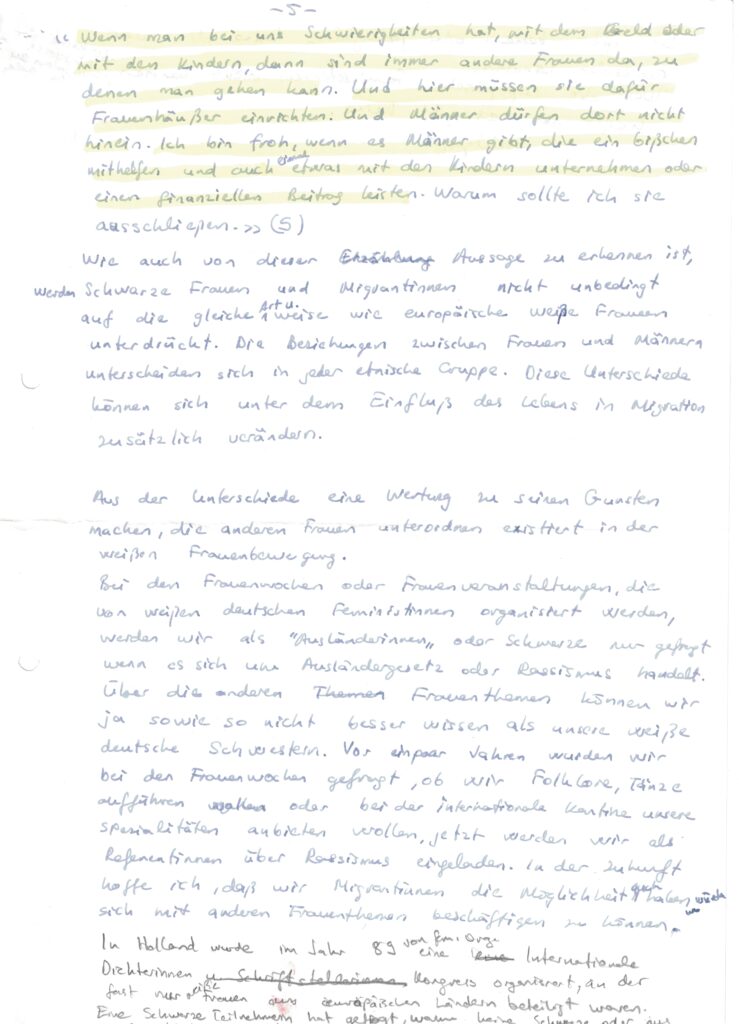 -5-
" Wenn man bei uns Schwierigkeiten hat, mit dem Geld oder
mit den Kindern, dann sind immer andere Frauen da, zu
denen man gehen kann. Und hier müssen sie dafür
Frauenhäußer einrichten. Und Männer dürfen dort nicht
hinein. Ich bin froh, wenn es Männer gibt, die ein bißchen
mithelfen und auch einmal etwas mit den Kindern unternehmen oder
einen finanziellen Beitrag leisten. Warum sollte ich sie
ausschließen.>> (5)
Wie auch von dieser Erzählung Aussage zu erkennen ist,
werden Schwarze Frauen und Migrantinnen nicht unbedingt
auf die gleiche Art u. weise wie europäische weiße Frauen
unterdrückt. Die Beziehungen zwischen Frauen und Männern
unterscheiden sich in jeder etnische Gruppe. Diese Unterschiede
können sich unter dem Einfluß des Lebens in Migration
zusätzlich verändern.
Aus der Unterschiede eine Wertung zu seinen Gunsten
machen, die anderen Frauen unterordnen existiert in der
weißen Frauenbewegung.
Bei den Frauenwochen oder Frauenveranstaltungen, die
von weißen deutschen Feministinnen organisiert werden,
werden wir als "Ausländerinnen„ oder Schwarze nur gefragt
wenn es sich um Ausländergesetz oder Rassismus handelt.
Über die anderen Themen Frauenthemen können wir
ja sowie so nicht besser wissen als unsere weiße
deutsche Schwestern. Vor einpaar Jahren wurden wir
bei den Frauenwochen gefragt, ob wir Folklore, Tänze
aufführen wollen oder bei der internationale Kantine unsere
spezialitäten anbieten wollen, jetzt werden wir als
Referentinnen über Rassismus eingeladen. In der Zukunft
hoffe ich, daß wir Migrantinnen die Möglichkeit haben
sich mit anderen Frauenthemen beschäftigen zu können.
In Holland wurde im Jahr 89 von fem. Org. eine Internationale
Dichterinnen u. Schriftstellerinnen Kongress organisiert, an der
fast nur Frauen aus europäischen Ländern beteiligt waren.
Eine Schwarze Teilnehmerin hat gefragt, warum keine Schwarze oder aus